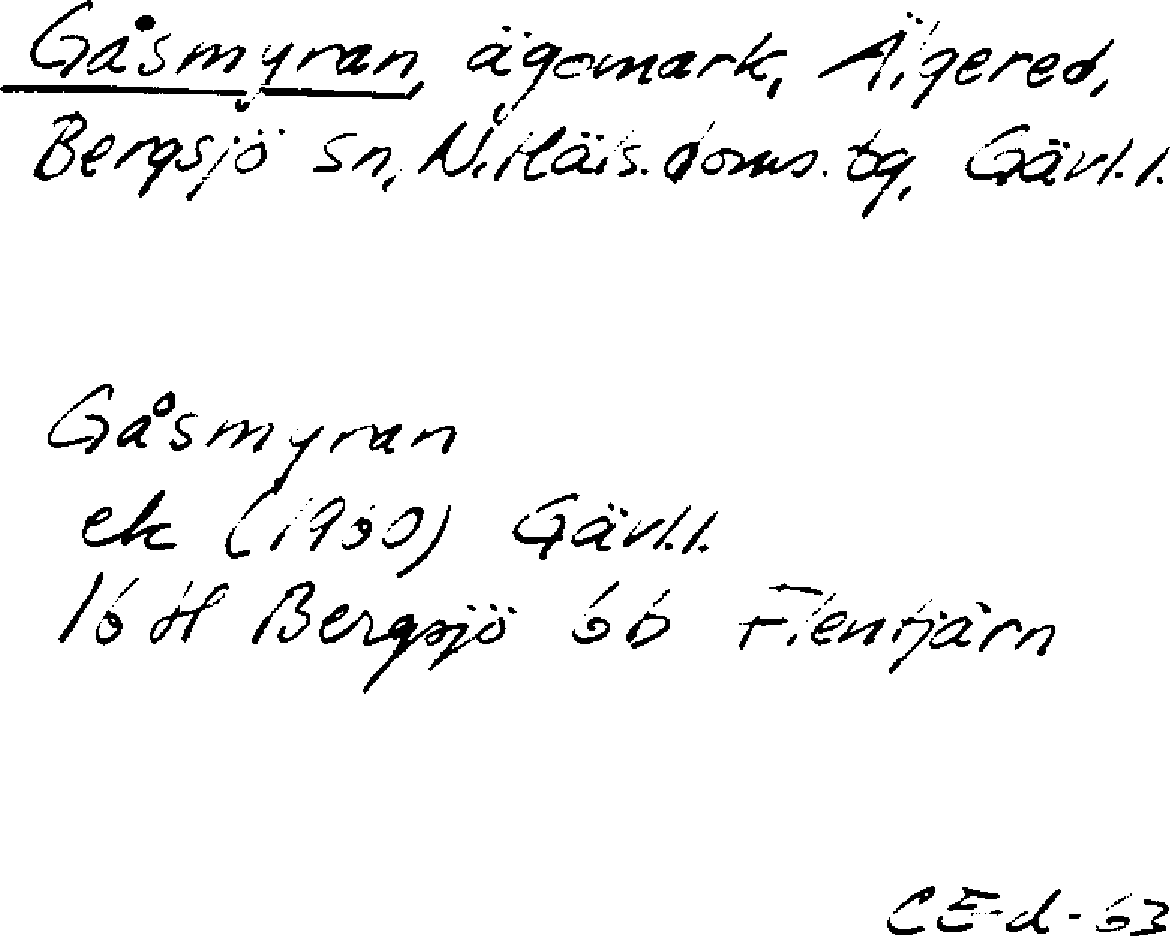 Gåsmyran, ägomark, Älgered,
Bergsjö sn, N. Häls. doms. tg, Gävl. l.
Gåsmyran
ek (1960) Gävl. l.
16 H Bergsjö 6b Flentjärn
CE-d-63